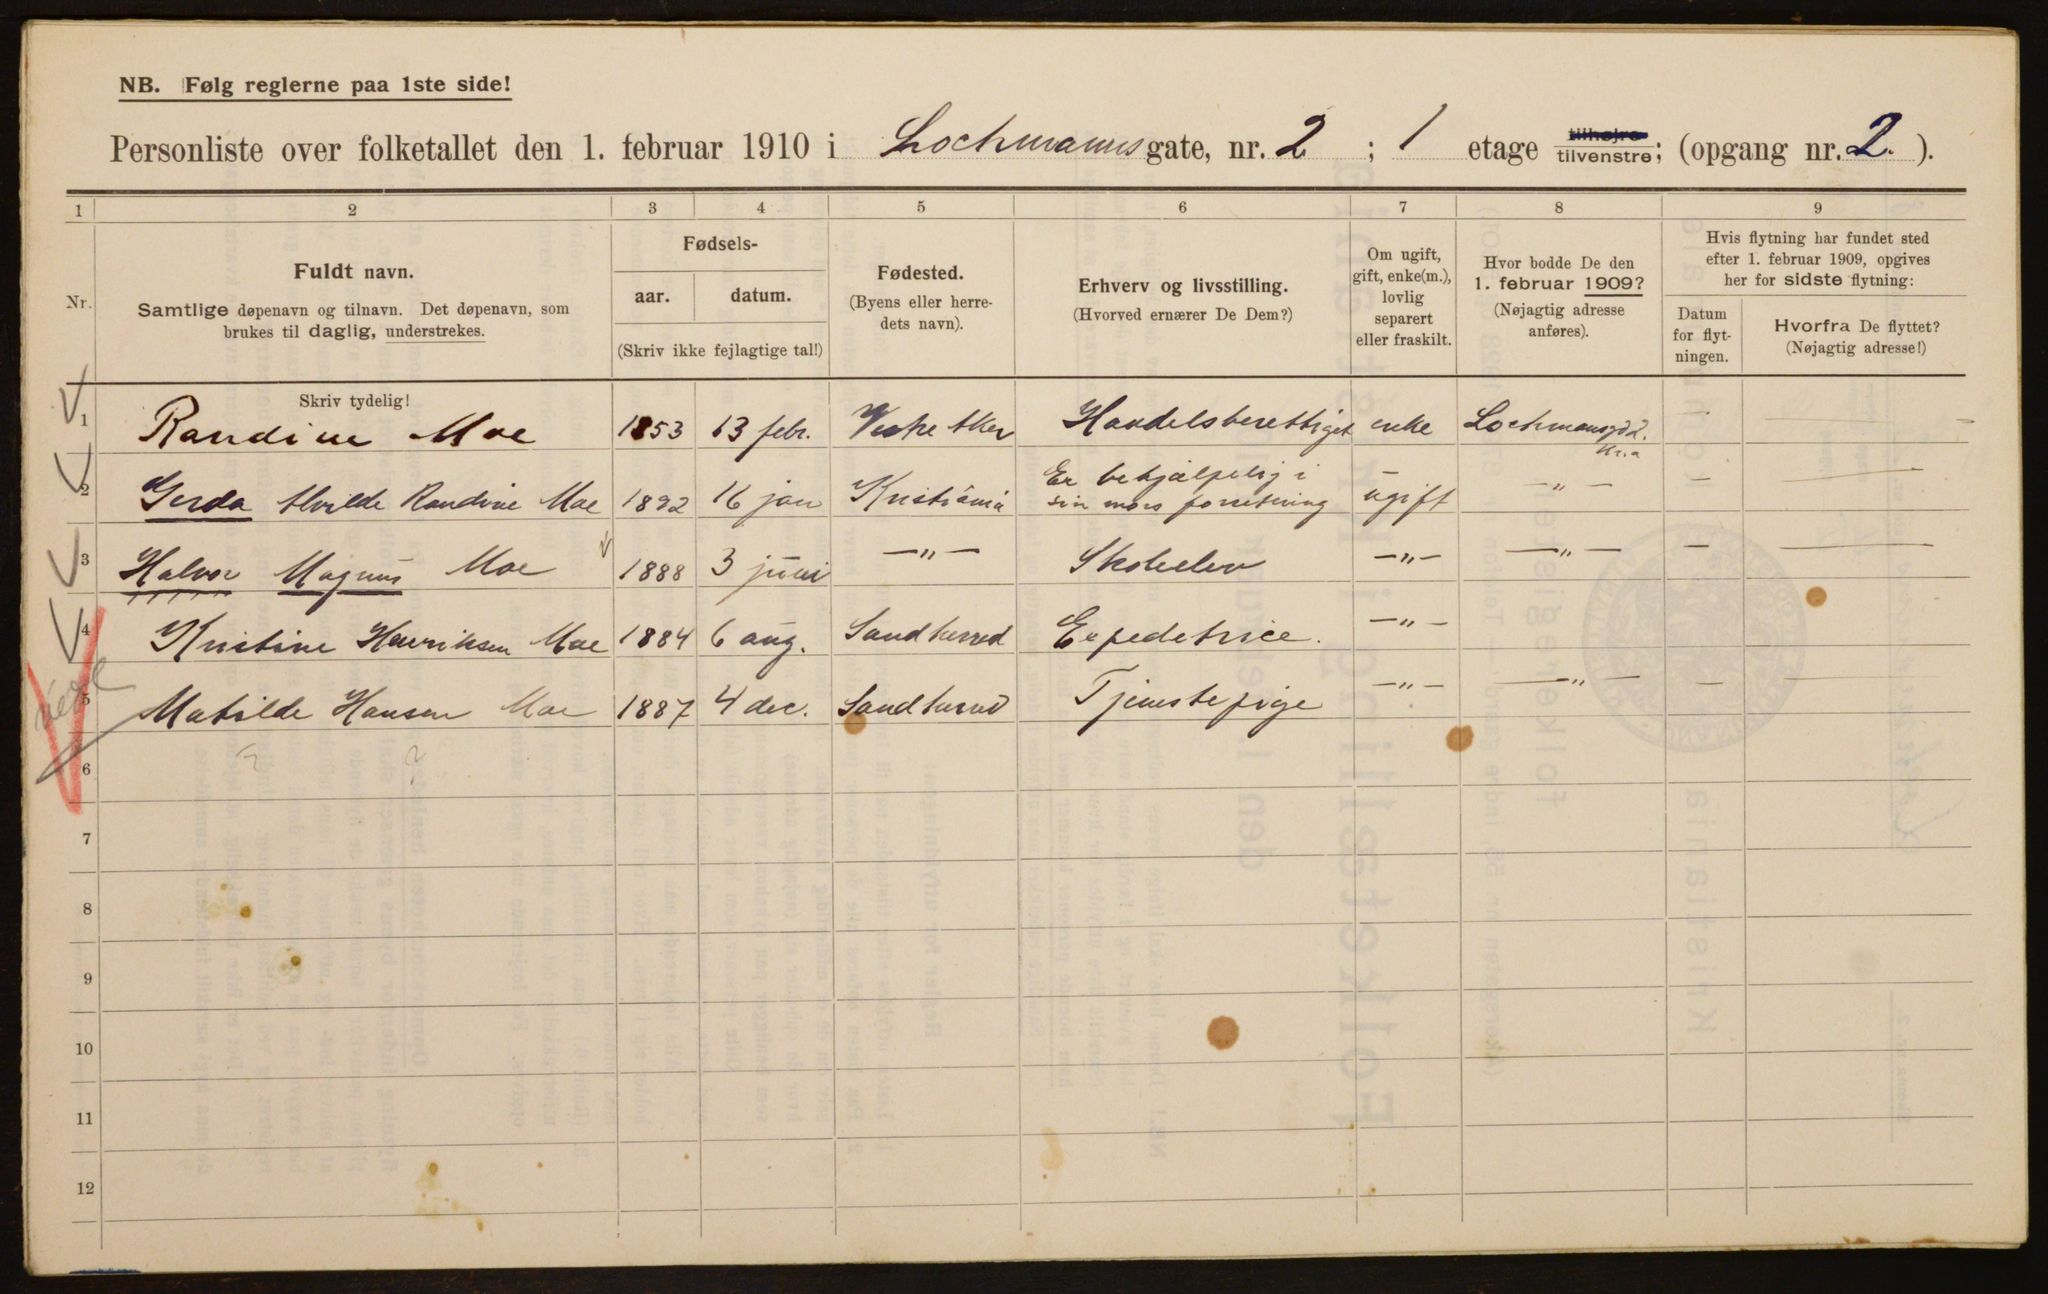 NB. Følg reglerne paa 1ste side!
Personliste over folketallet den 1. februar 1910 i Lochmanns gate, nr. 2 ; 1 etage tilhøjre tilvenstre; (opgang nr. 2. ).
1 2 3 4 5 6 7 8 9
Nr.
Fuldt navn.
Samtlige døpenavn og tilnavn. Det døpenavn, som
brukes til daglig, understrekes.
Fødsels-
aar. datum.
(Skriv ikke fejlagtige tal!)
Fødested.
(Byens eller herre-
dets navn).
Erhverv og livsstilling.
(Hvorved ernærer De Dem?)
Om ugift,
gift, enke(m.),
lovlig
separert
eller fraskilt.
Hvor bodde De den
1. februar 1909?
(Nøjagtig adresse
anføres).
Hvis flytning har fundet sted
efter 1. februar 1909, opgives
her for sidste flytning:
Datum
for flyt-
ningen.
Hvorfra De flyttet?
(Nøjagtig adresse!)
Skriv tydelig!
1 Randine Moe 1853 13 febr. Vestre Aker Handelsberettiget enke Lochmansgd 2. Kr.a
2 Gerda Alvilde Randine Moe 1892 16 jan Kristiania Er behjælpelig i
sin mors forretning ugift — " —
3 Halvor Magnus Moe 1888 3 juni — " — Skoleelev — " — — " —
4 Kristine Henriksen Moe 1884 6 aug. Sandherred Expeditrice. — " —
5 Matilde Hansen Moe 1887 4 dec. Sandherred Tjenestepige — " — — " —
6
7
8
9
10
11
12